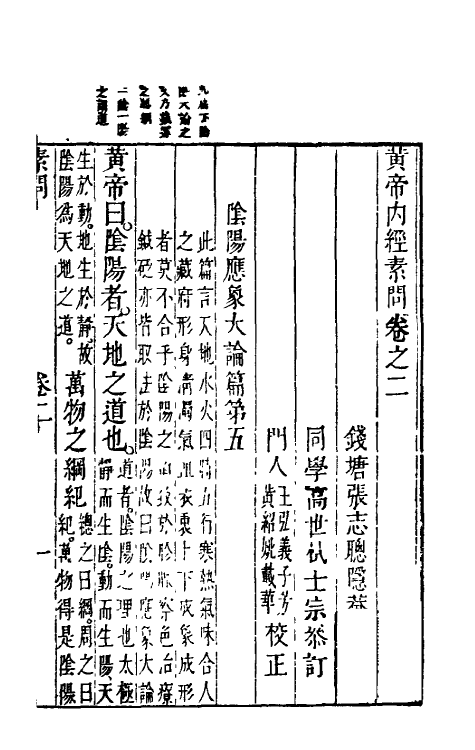 黃帝內經素問卷之二
錢塘張志聰隱菴
同學高世栻士宗叅訂
門人王弘義子芳
黃紹姚載華校正
陰陽應象大論篇第五
此篇言天地水火四時五行寒熱氣味合人
之藏府形身清濁氣血表裏上下成象成形
者莫不合乎陰陽之道致於診脈察色治療
鍼砭亦皆取法於陰陽故曰陰陽應象大論
黃帝曰。陰陽者。天地之道也。道者。陰陽之理也太極
靜而生陰。動而生陽天
生於動。地生於靜。故
陰陽爲天地之道。萬物之綱紀總之曰綱。周之曰
紀。萬物得是陰陽
素問
卷二
一